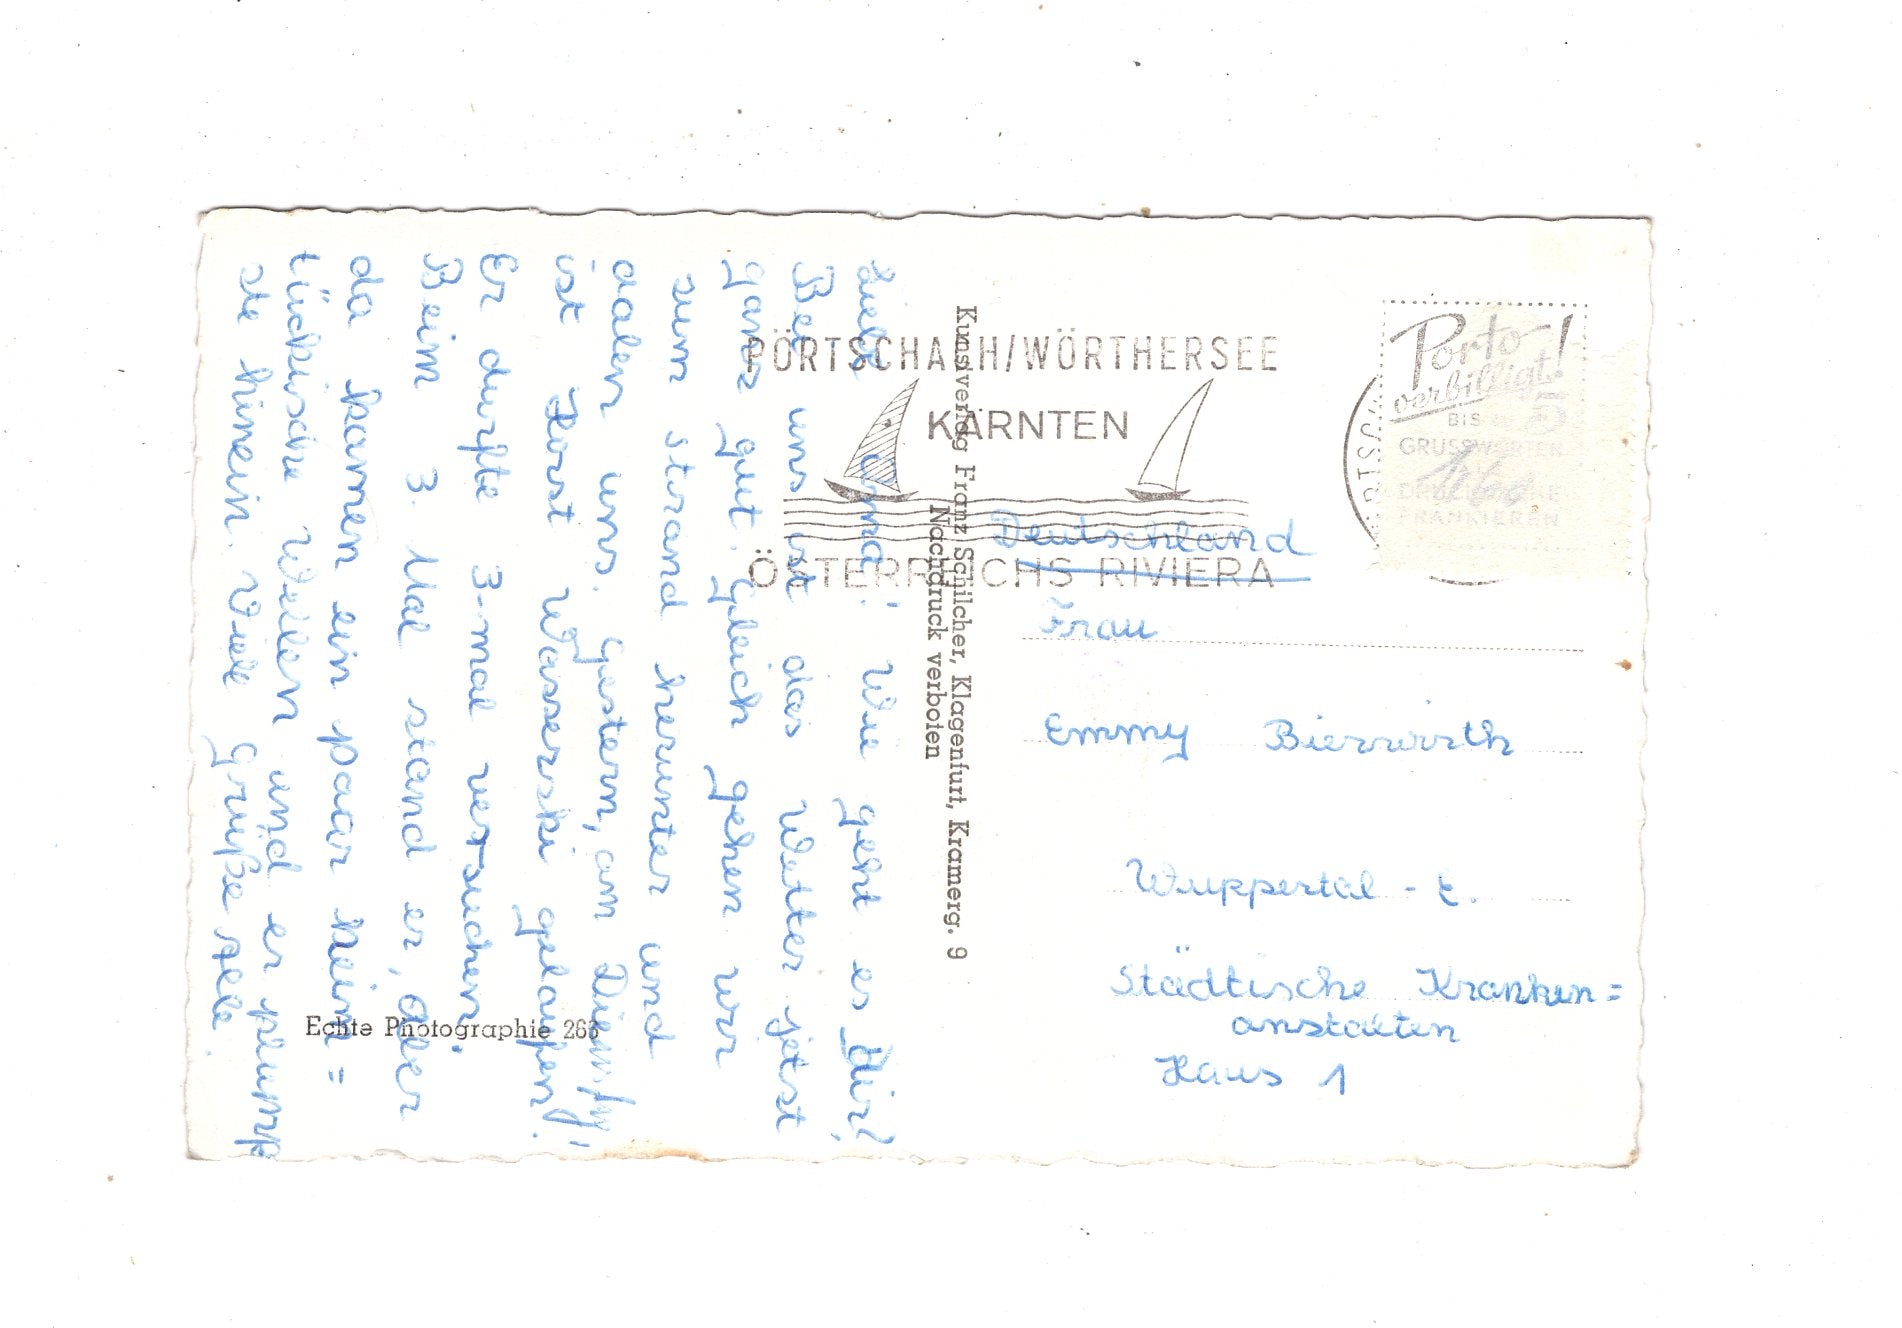 Liebe Oma! Wie geht es Dir?
Bei uns ist das Wetter jetzt
ganz gut. Gleich gehen wir
zum Strand herunter und
aalen uns. Gestern, am
ist Horst Wasserski gelaufen!
Er durfte 3-mal versuchen.
Beim 3. Mal stand er, aber
da kamen ein paar klein=
tückische Wellen und er plump
ste hinein. Viel Grüße alle.
Echte Photographie 263
Kunstverlag Franz Schilcher, Klagenfurt, Kramerg. 9
Nachdruck verboten
PÖRTSCHACH/WÖRTHERSEE
KÄRNTEN
ÖSTERREICHS RIVIERA
Porto
verbilligt!
BIS 5
GRUSSWORTEN
FRANKIEREN
Deutschland
Frau
Emmy Bierwirth
Wuppertal - E.
Städtische Kranken=
anstalten
Haus 1